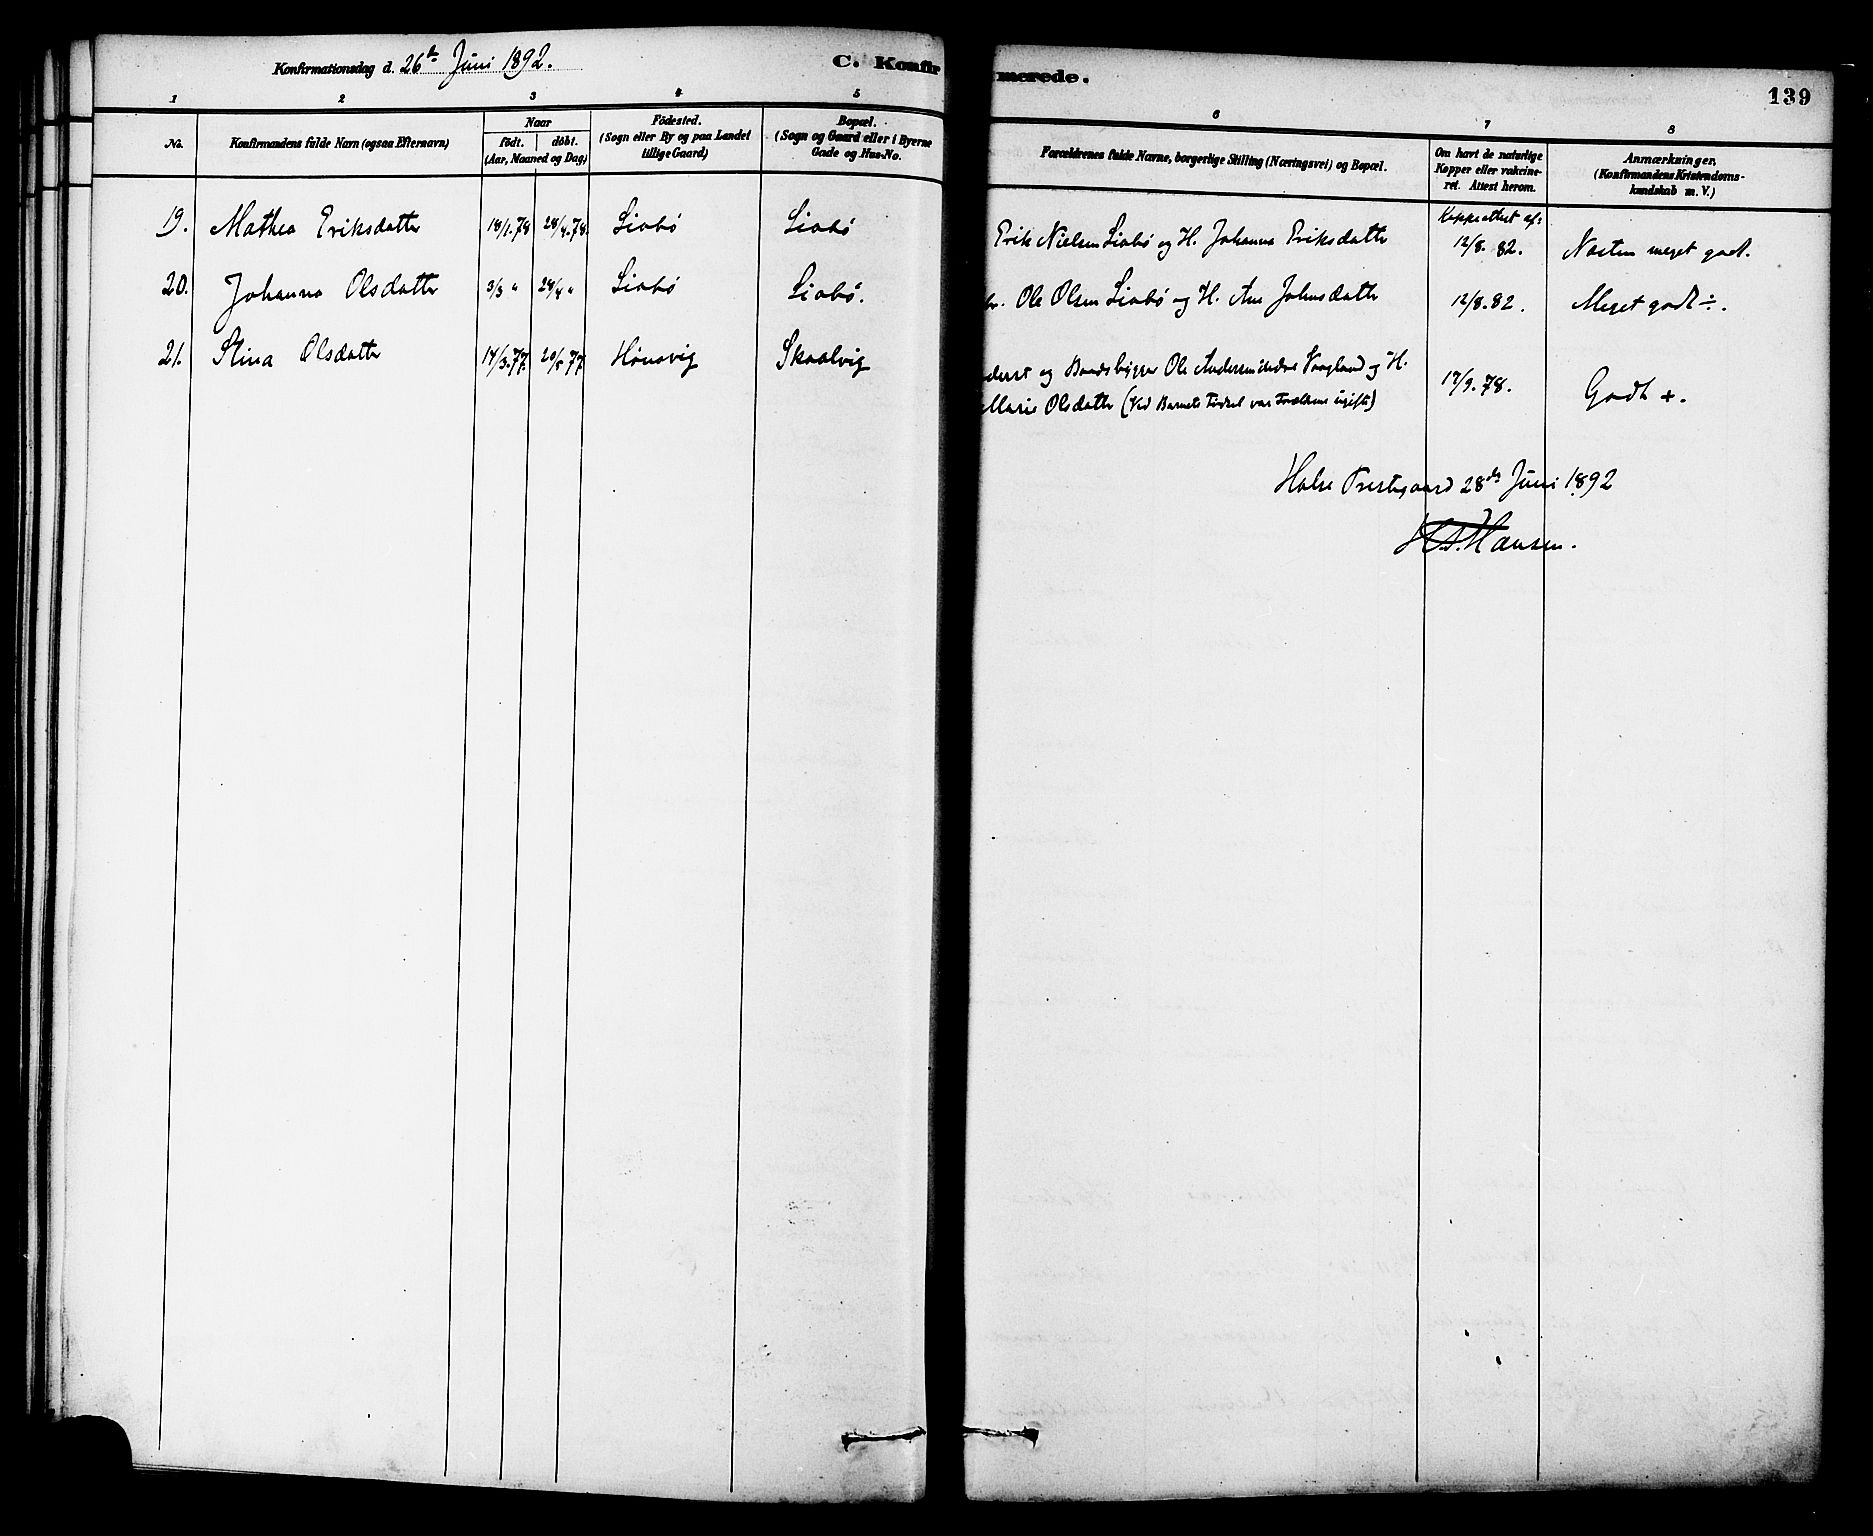 Konfirmationsdag d. 26de Juni 1892.
C. Konfirmerede.
139
1 2 3 4 5 6 7 8
No.
Konfirmandens fulde Navn (ogsaa Efternavn)
Naar
födt. döbt.
(Aar, Maaned og Dag)
Födested.
(Sogn eller By og paa Landet
tillige Gaard)
Bopæl.
(Sogn og Gaard eller i Byerne
Gade og Hus-No.
Forældrenes fulde Navne, borgerlige Stilling (Næringsvei) og Bopæl.
Om havt de naturlige
Kopper eller vakcine-
ret. Attest herom.
Anmærkninger.
(Konfirmandens Kristendoms-
kundskab m. V.)
Koppeattest af:
19. Mathea Eriksdatter 18/1.78 28/4.78. Liabø Liabø Erik Nielsen Liabø og H. Johanna Eriksdatter 12/8. 82. Næsten meget godt.
20. Johanna Olsdatter 3/3 " 24/4 " Liabø Liabø. Ole Olsen Liabø og H. Ane Johnsdatter 12/8.82. Meget godt ÷.
21. Stina Olsdatter 14/3.77. 20/5 77. Hønsvig Skaalvig og Baadsbygger Ole Andersen Vaagland og H.
Marie Olsdatter (Ved Barnets Fødsel var Forældrene ugifte) 17/9. 78. Godt +.
Halse Prestegaard 28de Juni 1892
Hansen.